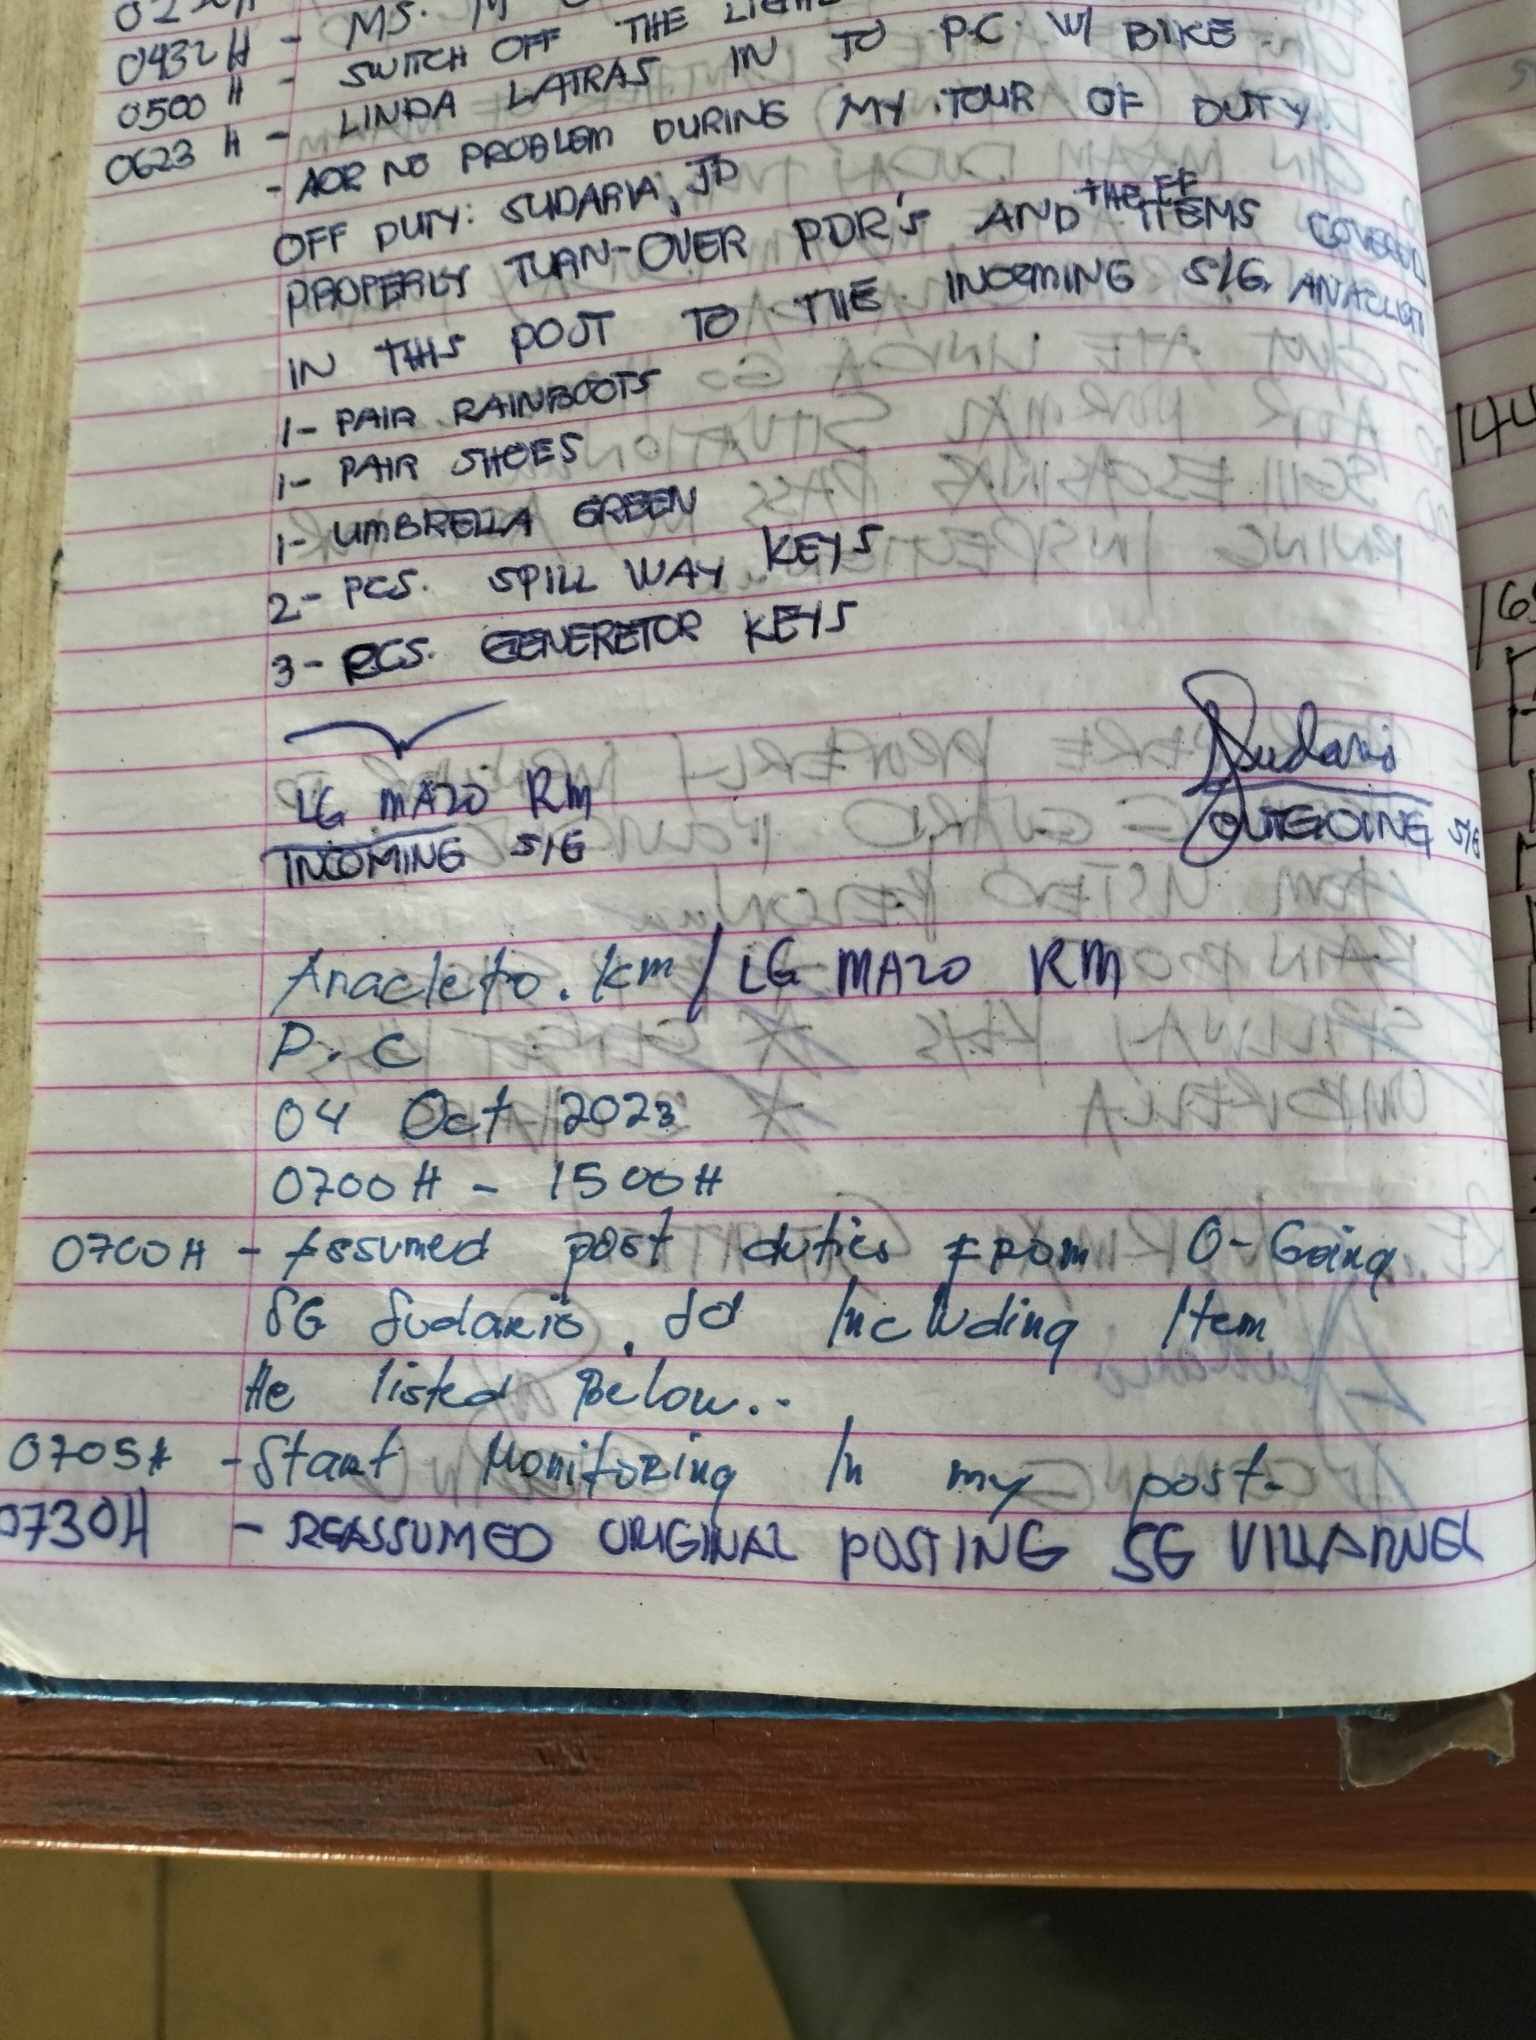 0432H - MS. M
0500 H - SWITCH OFF THE LIGH
0623 H - LINDA LATRAS IN TO P.C. W/ BIKE
- AOR NO PROBLEM DURING MY TOUR OF DUTY
OFF DUTY: SUDARIA, JD
PROPERLY TURN-OVER PDR'S AND THE FF ITEMS COVERED
IN THIS POST TO THE INCOMING S/G, ANACLETO
1- PAIR RAINBOOTS
1- PAIR SHOES
1- UMBRELLA GREEN
2- PCS. SPILL WAY KEYS
3- PCS. GENERETOR KEYS
Sudario
LG MAZO RM
INCOMING S/G
OUTGOING S/G
Anacleto. km / LG MAZO RM
P. C
04 Oct 2023
0700H - 1500H
0700H - Assumed post duties FROM O-Going
SG Sudario. Jd Including Item
He listed Below..
0705H - Start Monitoring In my post.
0730H - REASSUMED ORIGINAL POSTING SG VILLARUEL
144